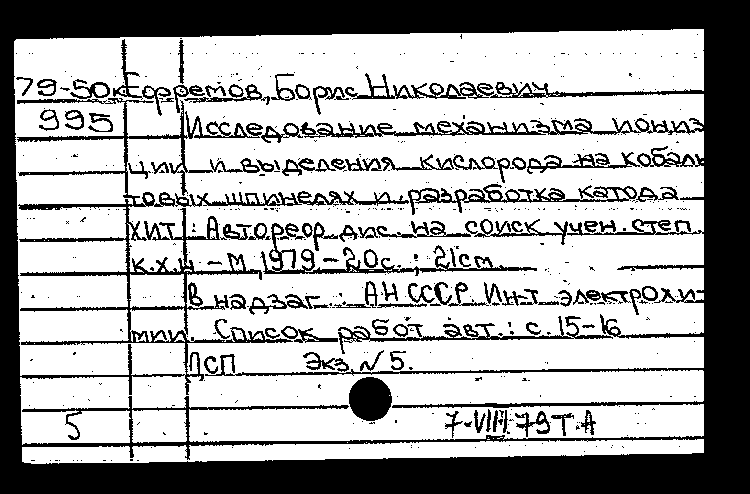 79-50к Ефремов, Борис Николаевич
995 Исследование механизма иониза
ции и выделения кислорода на кобаль
товых шпинелях и разработка катода
ХИТ : Автореф. дис. на соиск учен. степ.
к.х.н - М, 1979 - 20с. ; 21см
В надзаг : АН СССР. Ин-т электрохи-
мии. Список работ авт. : с. 15-16
ДСП Экз. № 5.
5 7-VIII 79 Т.А